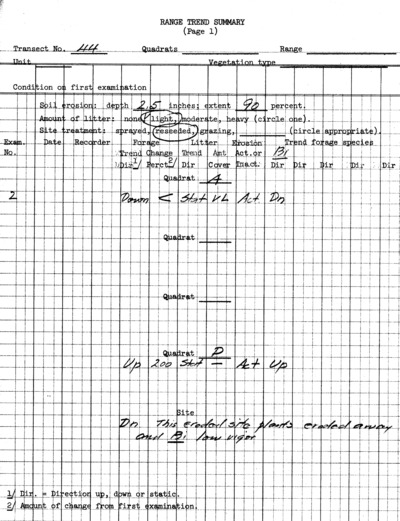 RANGE TREND SUMMARY
(Page 1)
Transect No. 44 Quadrats Range
Unit Vegetation type
Condition on first examination
Soil erosion: depth 2.5 inches; extent 90 percent.
Amount of litter: none, light, moderate, heavy (circle one).
Site treatment: sprayed, reseeded, grazing, (circle appropriate).
Exam. Date Recorder Forage Litter Erosion Trend forage species
No. Trend Change Trend Amt Act.or Bi
Dir 1/ Perct 2/ Dir Cover Inact. Dir Dir Dir Dir Dir
Quadrat A
2 Down < Stat VL Act Dn
Quadrat
Quadrat
Quadrat P
Up 200 Stat — Act Up
Site
Dn This eroded site plants eroded away
and Bi low vigor
1/ Dir. = Direction up, down or static.
2/ Amount of change from first examination.